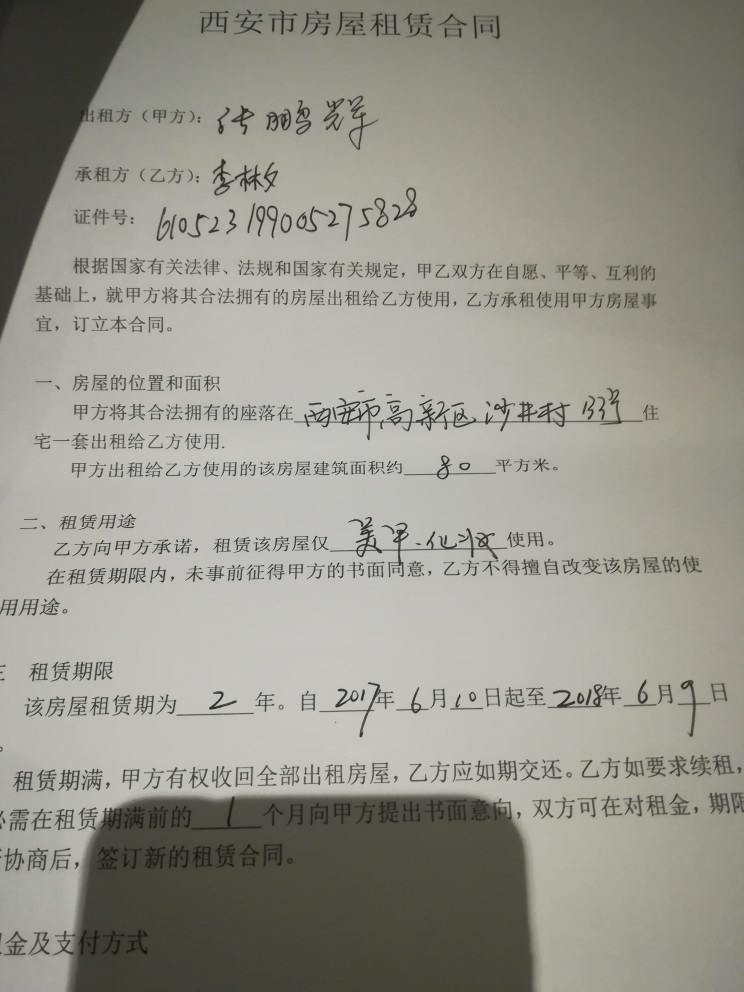 西安市房屋租赁合同
出租方（甲方）：张鹏辉
承租方（乙方）：李林夕
证件号：610523199005275828
根据国家有关法律、法规和国家有关规定，甲乙双方在自愿、平等、互利的
基础上，就甲方将其合法拥有的房屋出租给乙方使用，乙方承租使用甲方房屋事
宜，订立本合同。
一、房屋的位置和面积
甲方将其合法拥有的座落在西安市高新区沙井村133号住
宅一套出租给乙方使用.
甲方出租给乙方使用的该房屋建筑面积约80平方米。
二、租赁用途
乙方向甲方承诺，租赁该房屋仅美甲.化妆使用。
在租赁期限内，未事前征得甲方的书面同意，乙方不得擅自改变该房屋的使
用用途。
三 租赁期限
该房屋租赁期为2年。自2017年6月10日起至2018年6月9日
。
租赁期满，甲方有权收回全部出租房屋，乙方应如期交还。乙方如要求续租，
必需在租赁期满前的1个月向甲方提出书面意向，双方可在对租金，期限
协商后，签订新的租赁合同。
金及支付方式